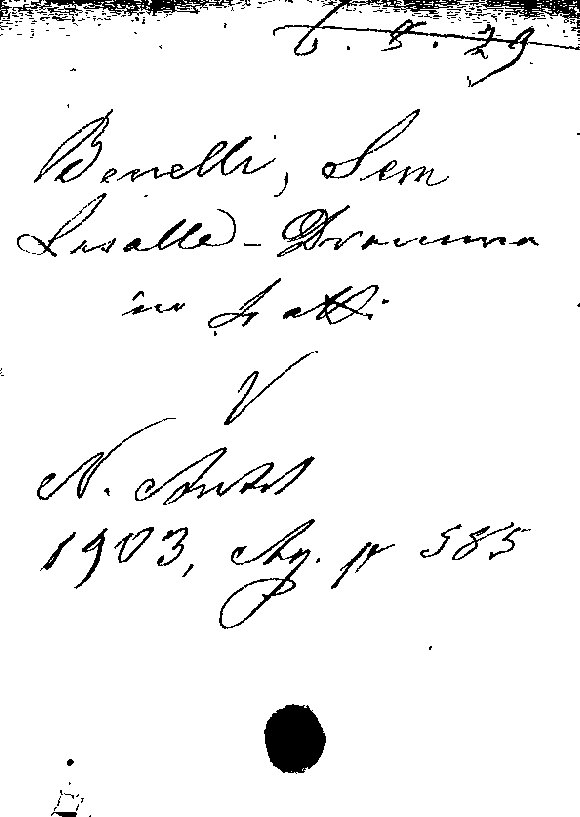 6.8.29
Benelli, Sem
Lasalle - Dramma
in 4 atti
V
N. Antol
1903, Ag. p 585